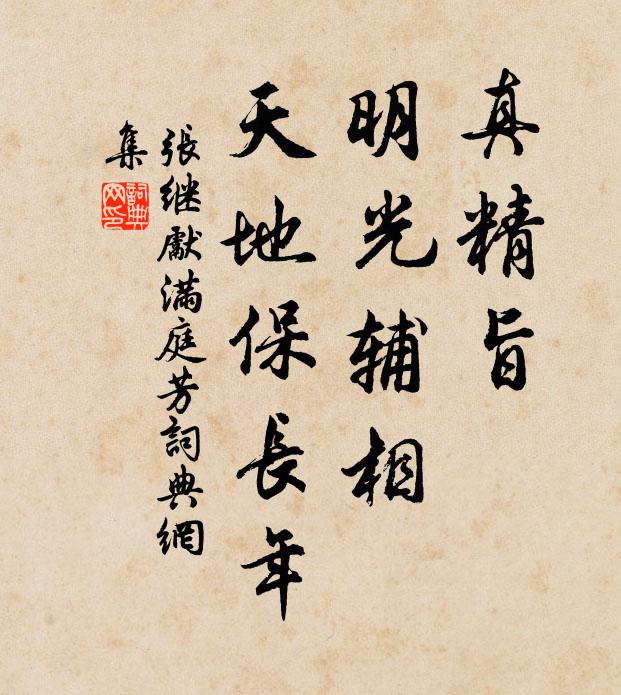 真精旨
明光辅相
天地保長年
張继獻满庭芳詞典網
集
詞典
网印